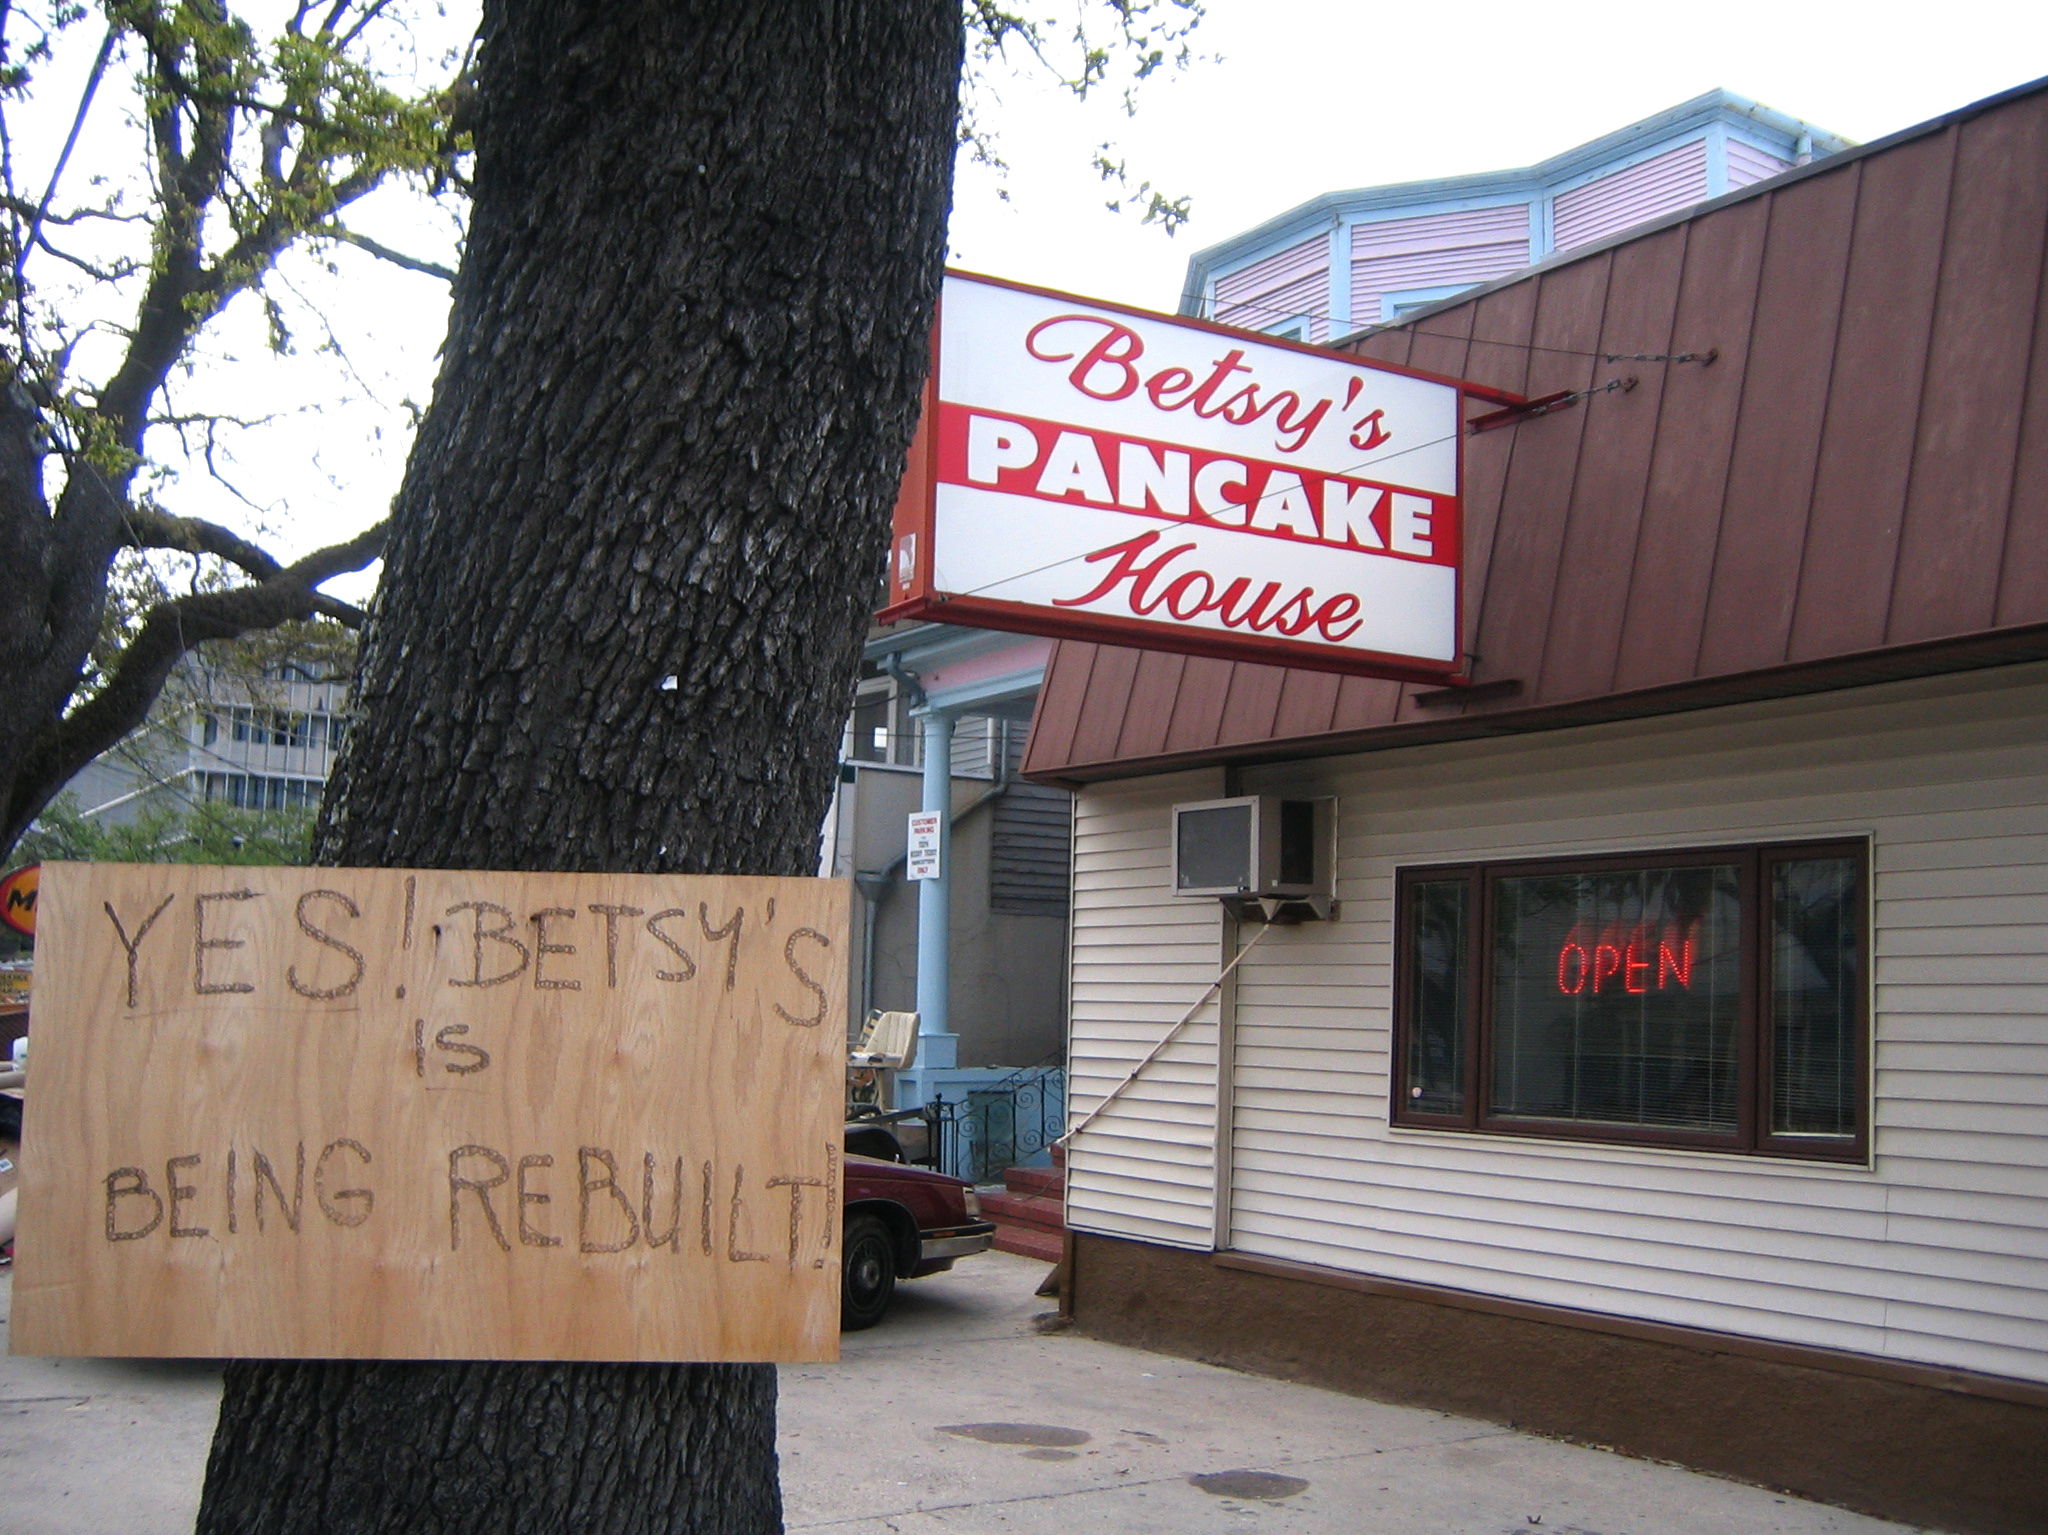 Betsy's
PANCAKE
House
CUSTOMER
PARKING
ONLY
YES! BETSY'S
IS
BEING REBUILT!
OPEN